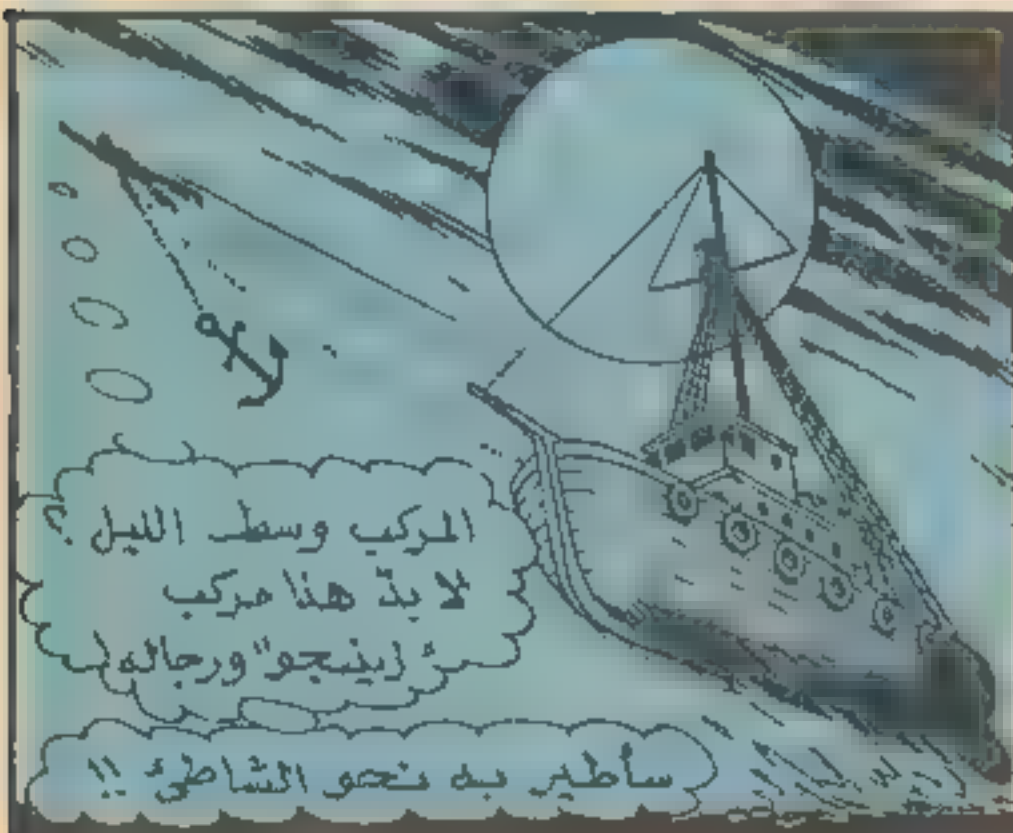 المركب وسط الليل ؟
لا بدّ هذا مركب
"رينيجو" ورجاله
سأطير به نحو الشاطئ !!